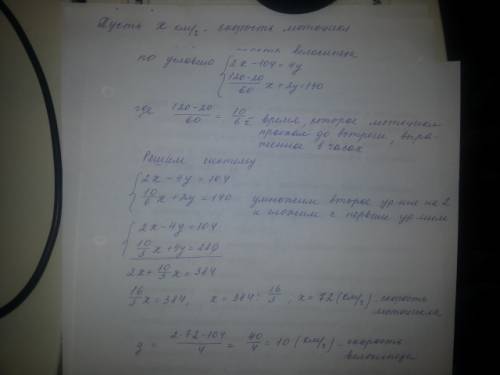 Пусть x км/ч - скорость мотоцикл
велосипеда
по условию { 2x - 104 = 4y
120-20/60 x + 2y = 140
где 120-20/60 = 10/6 ч время, которое мотоцикл
проехал до встречи, выра-
женное в часах
Решим систему
{ 2x - 4y = 104
10/6 x + 2y = 140 умножим второе ур-ние на 2
и сложим с первым ур-нием
{ 2x - 4y = 104
10/3 x + 4y = 280
2x + 10/3 x = 384
16/3 x = 384, x = 384 : 16/3, x = 72 (км/ч) - скорость
мотоцикла
y = 2·72-104/4 = 40/4 = 10 (км/ч) - скорость
велосипеда